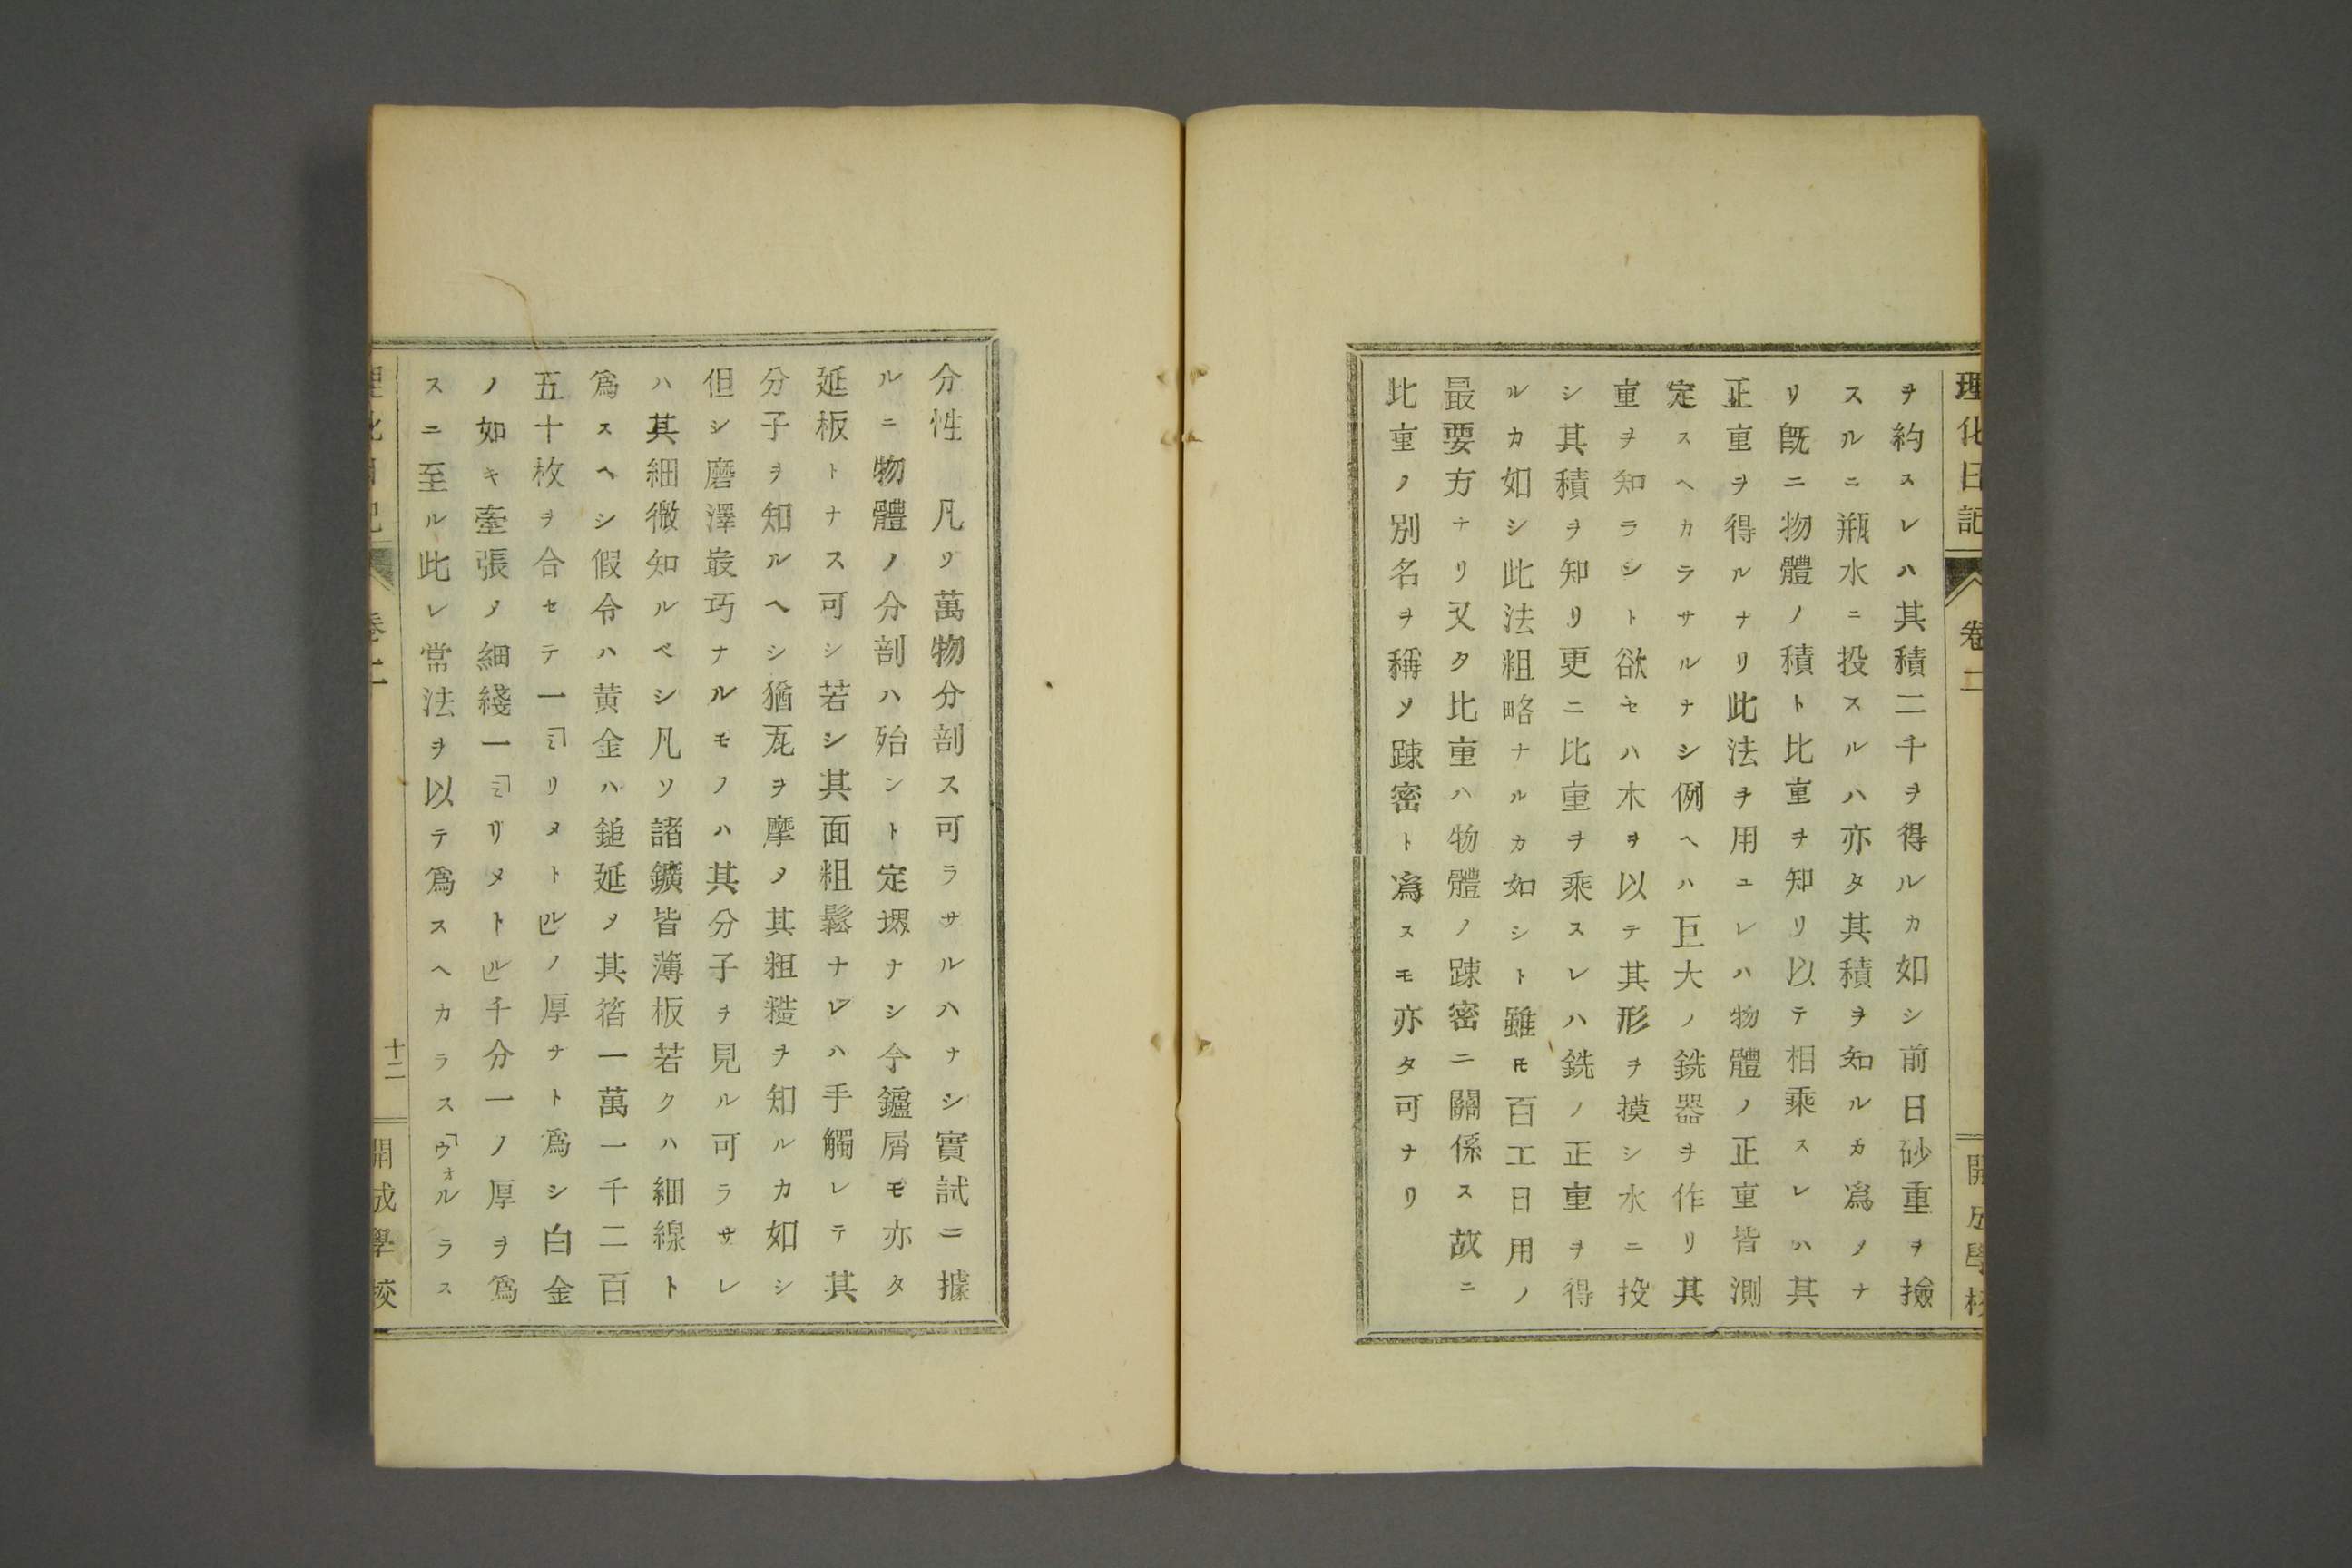 理化日記 卷二 開成學校
ヲ約スレハ其積二千ヲ得ルカ如シ前日砂重ヲ撿
スルニ瓶水ニ投スルハ亦タ其積ヲ知ルカ爲ノナ
リ旣ニ物體ノ積ト比重ヲ知リ以テ相乘スレハ其
正重ヲ得ルナリ此法ヲ用ユレハ物體ノ正重皆測
定スヘカラサルナシ例ヘハ巨大ノ銑器ヲ作リ其
重ヲ知ラント欲セハ木ヲ以テ其形ヲ摸シ水ニ投
シ其積ヲ知リ更ニ比重ヲ乘スレハ銑ノ正重ヲ得
ルカ如シ此法粗略ナルカ如シト雖モ百工日用ノ
最要方ナリ又タ比重ハ物體ノ踈密ニ關係ス故ニ
比重ノ別名ヲ稱ソ踈密ト爲スモ亦タ可ナリ
分性 凡ソ萬物分剖ス可ラサルハナシ實試ニ據
ルニ物體ノ分剖ハ殆ント定堺ナシ今鑪屑モ亦タ
延板トナス可シ若シ其面粗鬆ナレハ手觸レテ其
分子ヲ知ルヘシ猶瓦ヲ摩メ其粗糙ヲ知ルカ如シ
但シ磨澤最巧ナルモノハ其分子ヲ見ル可ラサレ
ハ其細微知ルベシ凡ソ諸鑛皆薄板若クハ細線ト
爲スヘシ假令ハ黄金ハ鎚延メ其箔一萬一千二百
五十枚ヲ合セテ一「ミリメトル」ノ厚ナト爲シ白金
ノ如キ牽張ノ細綫一「ミリメトル」千分一ノ厚ヲ爲
スニ至ル此レ常法ヲ以テ爲スヘカラス「ウォルラス
理化日記 卷二 十二 開成學校